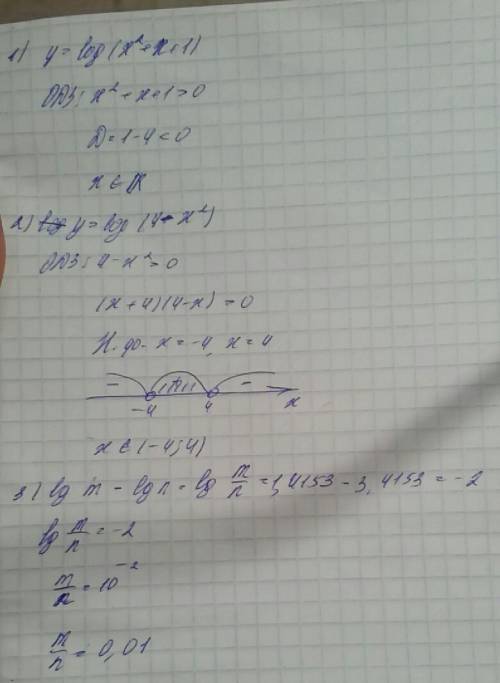 1) y = log(x²+x+1)
ОДЗ: x²+x+1>0
D=1-4<0
x∈R
2) y = log(4-x²)
ОДЗ: 4-x²>0
(x+4)(4-x)=0
Н. ф. x=-4, x=4
- + -
-4 4 x
x∈(-4;4)
3) lg m - lg n = lg m/n = 1,4153 - 3,4153 = -2
lg m/n = -2
m/n = 10⁻²
m/n = 0,01